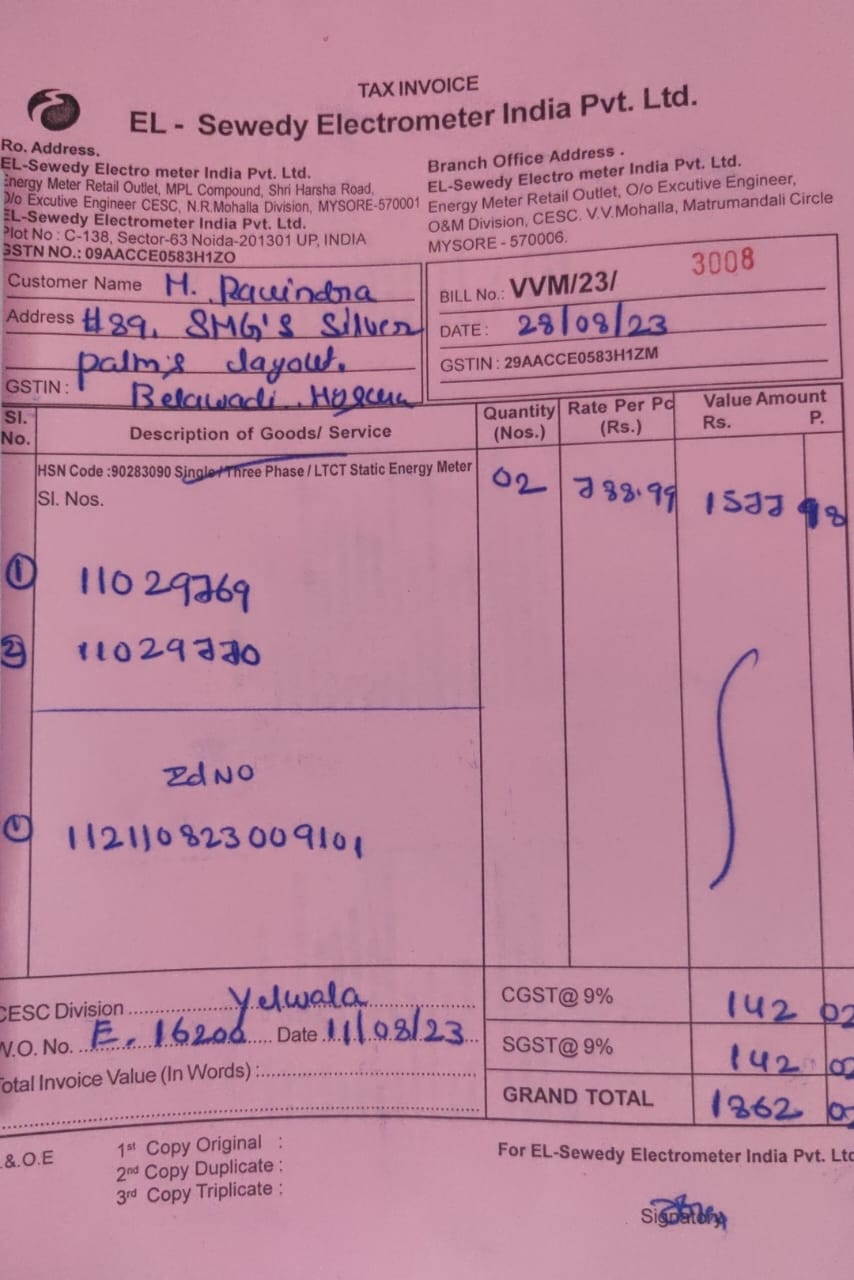 TAX INVOICE
EL - Sewedy Electrometer India Pvt. Ltd.
Ro. Address.
EL-Sewedy Electro meter India Pvt. Ltd.
Energy Meter Retail Outlet, MPL Compound, Shri Harsha Road,
O/o Excutive Engineer CESC, N.R.Mohalla Division, MYSORE-570001
EL-Sewedy Electrometer India Pvt. Ltd.
Plot No : C-138, Sector-63 Noida-201301 UP, INDIA
GSTN NO.: 09AACCE0583H1ZO
Branch Office Address .
EL-Sewedy Electro meter India Pvt. Ltd.
Energy Meter Retail Outlet, O/o Excutive Engineer,
O&M Division, CESC. V.V.Mohalla, Matrumandali Circle
MYSORE - 570006.
Customer Name M. Ravindra
Address #89, SMG'S Silver
palm's layout.
GSTIN : Belawadi,
BILL No.: VVM/23/ 3008
DATE : 28/08/23
GSTIN : 29AACCE0583H1ZM
Sl. No. Description of Goods/ Service Quantity (Nos.) Rate Per Pc (Rs.) Value Amount Rs. P.
HSN Code :90283090 Single/Three Phase / LTCT Static Energy Meter 02 788.99 1577 98
Sl. Nos.
① 11029769
② 11029770
Id NO
① 112110823009101
CESC Division Yelwala CGST@ 9% 142 02
W.O. No. E. 16200 Date 11/08/23 SGST@ 9% 142 02
Total Invoice Value (In Words) : GRAND TOTAL 1862 02
E.&.O.E
1st Copy Original :
2nd Copy Duplicate :
3rd Copy Triplicate :
For EL-Sewedy Electrometer India Pvt. Ltd
Signatory